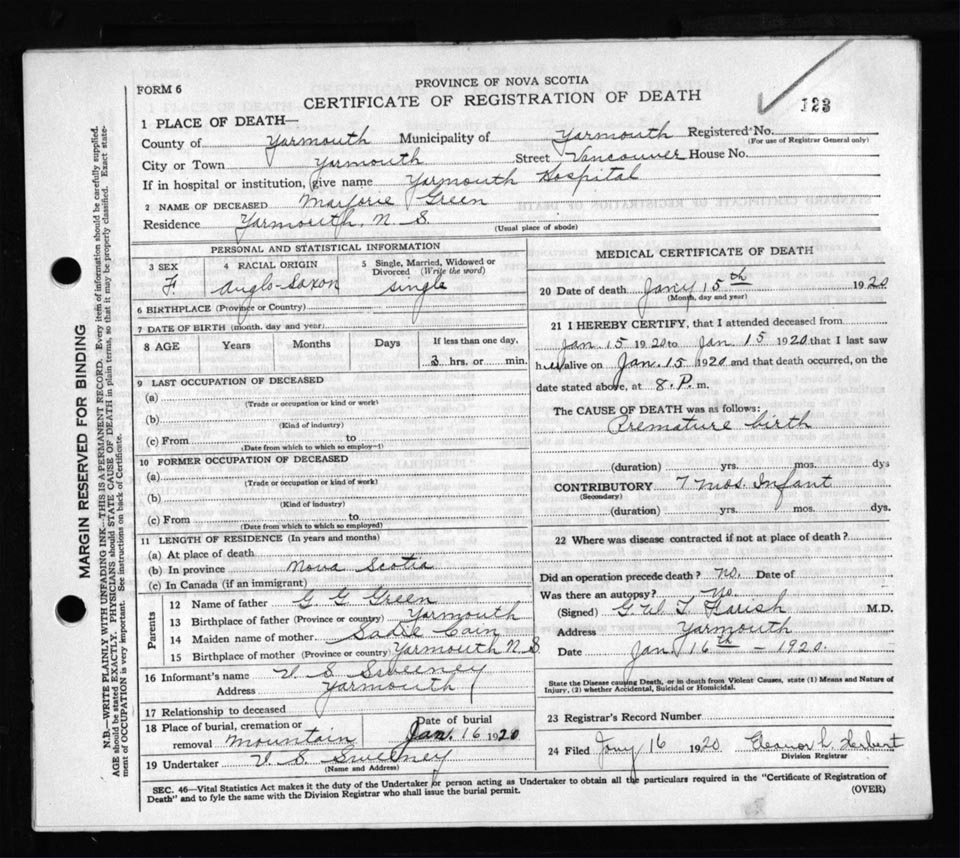 FORM 6
PROVINCE OF NOVA SCOTIA
CERTIFICATE OF REGISTRATION OF DEATH
123
1 PLACE OF DEATH—
County of Yarmouth Municipality of Yarmouth Registered No.
(For use of Registrar General only)
City or Town Yarmouth Street Vancouver House No.
If in hospital or institution, give name Yarmouth Hospital
2 NAME OF DECEASED Marjorie Green
Residence Yarmouth, N. S.
(Usual place of abode)
PERSONAL AND STATISTICAL INFORMATION
3 SEX F.
4 RACIAL ORIGIN Anglo-Saxon
5 Single, Married, Widowed or Divorced (Write the word) single
6 BIRTHPLACE (Province or Country)
7 DATE OF BIRTH (month, day and year)
8 AGE Years Months Days If less than one day,
3 hrs. or min.
9 LAST OCCUPATION OF DECEASED
(a)
(Trade or occupation or kind or work)
(b)
(Kind of industry)
(c) From to
(Date from which to which so employed)
10 FORMER OCCUPATION OF DECEASED
(a)
(Trade or occupation or kind of work)
(b)
(Kind of industry)
(c) From to
(Date from which to which so employed)
11 LENGTH OF RESIDENCE (In years and months)
(a) At place of death
(b) In province Nova Scotia
(c) In Canada (if an immigrant)
Parents
12 Name of father G G Green
13 Birthplace of father (Province or country) Yarmouth
14 Maiden name of mother Sadie Cain
15 Birthplace of mother (Province or country) Yarmouth N. S.
16 Informant's name V. S. Sweeney
Address Yarmouth
17 Relationship to deceased
18 Place of burial, cremation or removal Mountain
Date of burial Jan. 16 1920
19 Undertaker V. S. Sweeney
(Name and Address)
MEDICAL CERTIFICATE OF DEATH
20 Date of death Jany 15th 1920
(Month, day and year)
21 I HEREBY CERTIFY, that I attended deceased from
Jan. 15 1920 to Jan. 15 1920 that I last saw
her alive on Jan. 15 1920 and that death occurred, on the
date stated above, at 8. P. m.
The CAUSE OF DEATH was as follows:
Premature birth
(duration) yrs. mos. dys
CONTRIBUTORY 7 mos. Infant
(Secondary)
(duration) yrs. mos. dys
22 Where was disease contracted if not at place of death?
Did an operation precede death? no. Date of
Was there an autopsy? No
(Signed) G. W. T. Farish M.D.
Address Yarmouth
Date Jan 16th – 1920.
State the Disease causing Death, or in death from Violent Causes, state (1) Means and Nature of
Injury, (2) whether Accidental, Suicidal or Homicidal.
23 Registrar's Record Number
24 Filed Jany 16 1920 Eleanor L. Herbert
Division Registrar
SEC. 46—Vital Statistics Act makes it the duty of the Undertaker or person acting as Undertaker to obtain all the particulars required in the "Certificate of Registration of
Death" and to fyle the same with the Division Registrar who shall issue the burial permit.
(OVER)
MARGIN RESERVED FOR BINDING
N.B.—WRITE PLAINLY WITH UNFADING INK—THIS IS A PERMANENT RECORD. Every item of information should be carefully supplied.
AGE should be stated EXACTLY. PHYSICIANS should STATE CAUSE OF DEATH in plain terms, so that it may be properly classified. Exact state-
ment of OCCUPATION is very important. See instructions on back of Certificate.